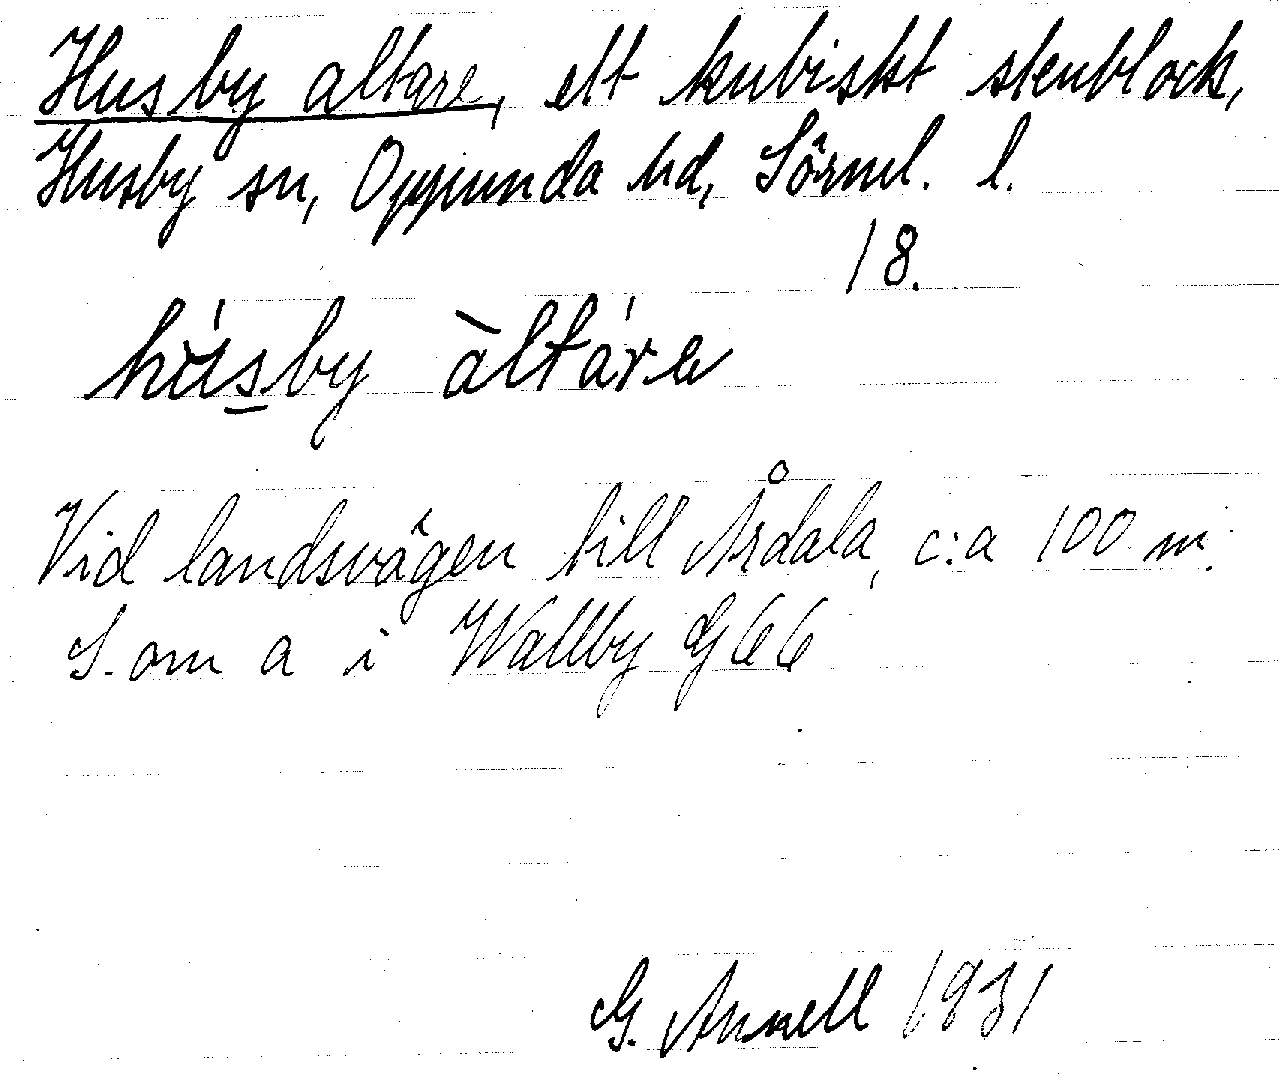 Husby altare, ett kubiskt stenblock,
Husby sn, Oppunda hd, Sörml. l.
18.
húsby àltáre
Vid landsvägen till Årdala, c:a 100 m.
S. om a i Wallby G66
G. Annell 1931